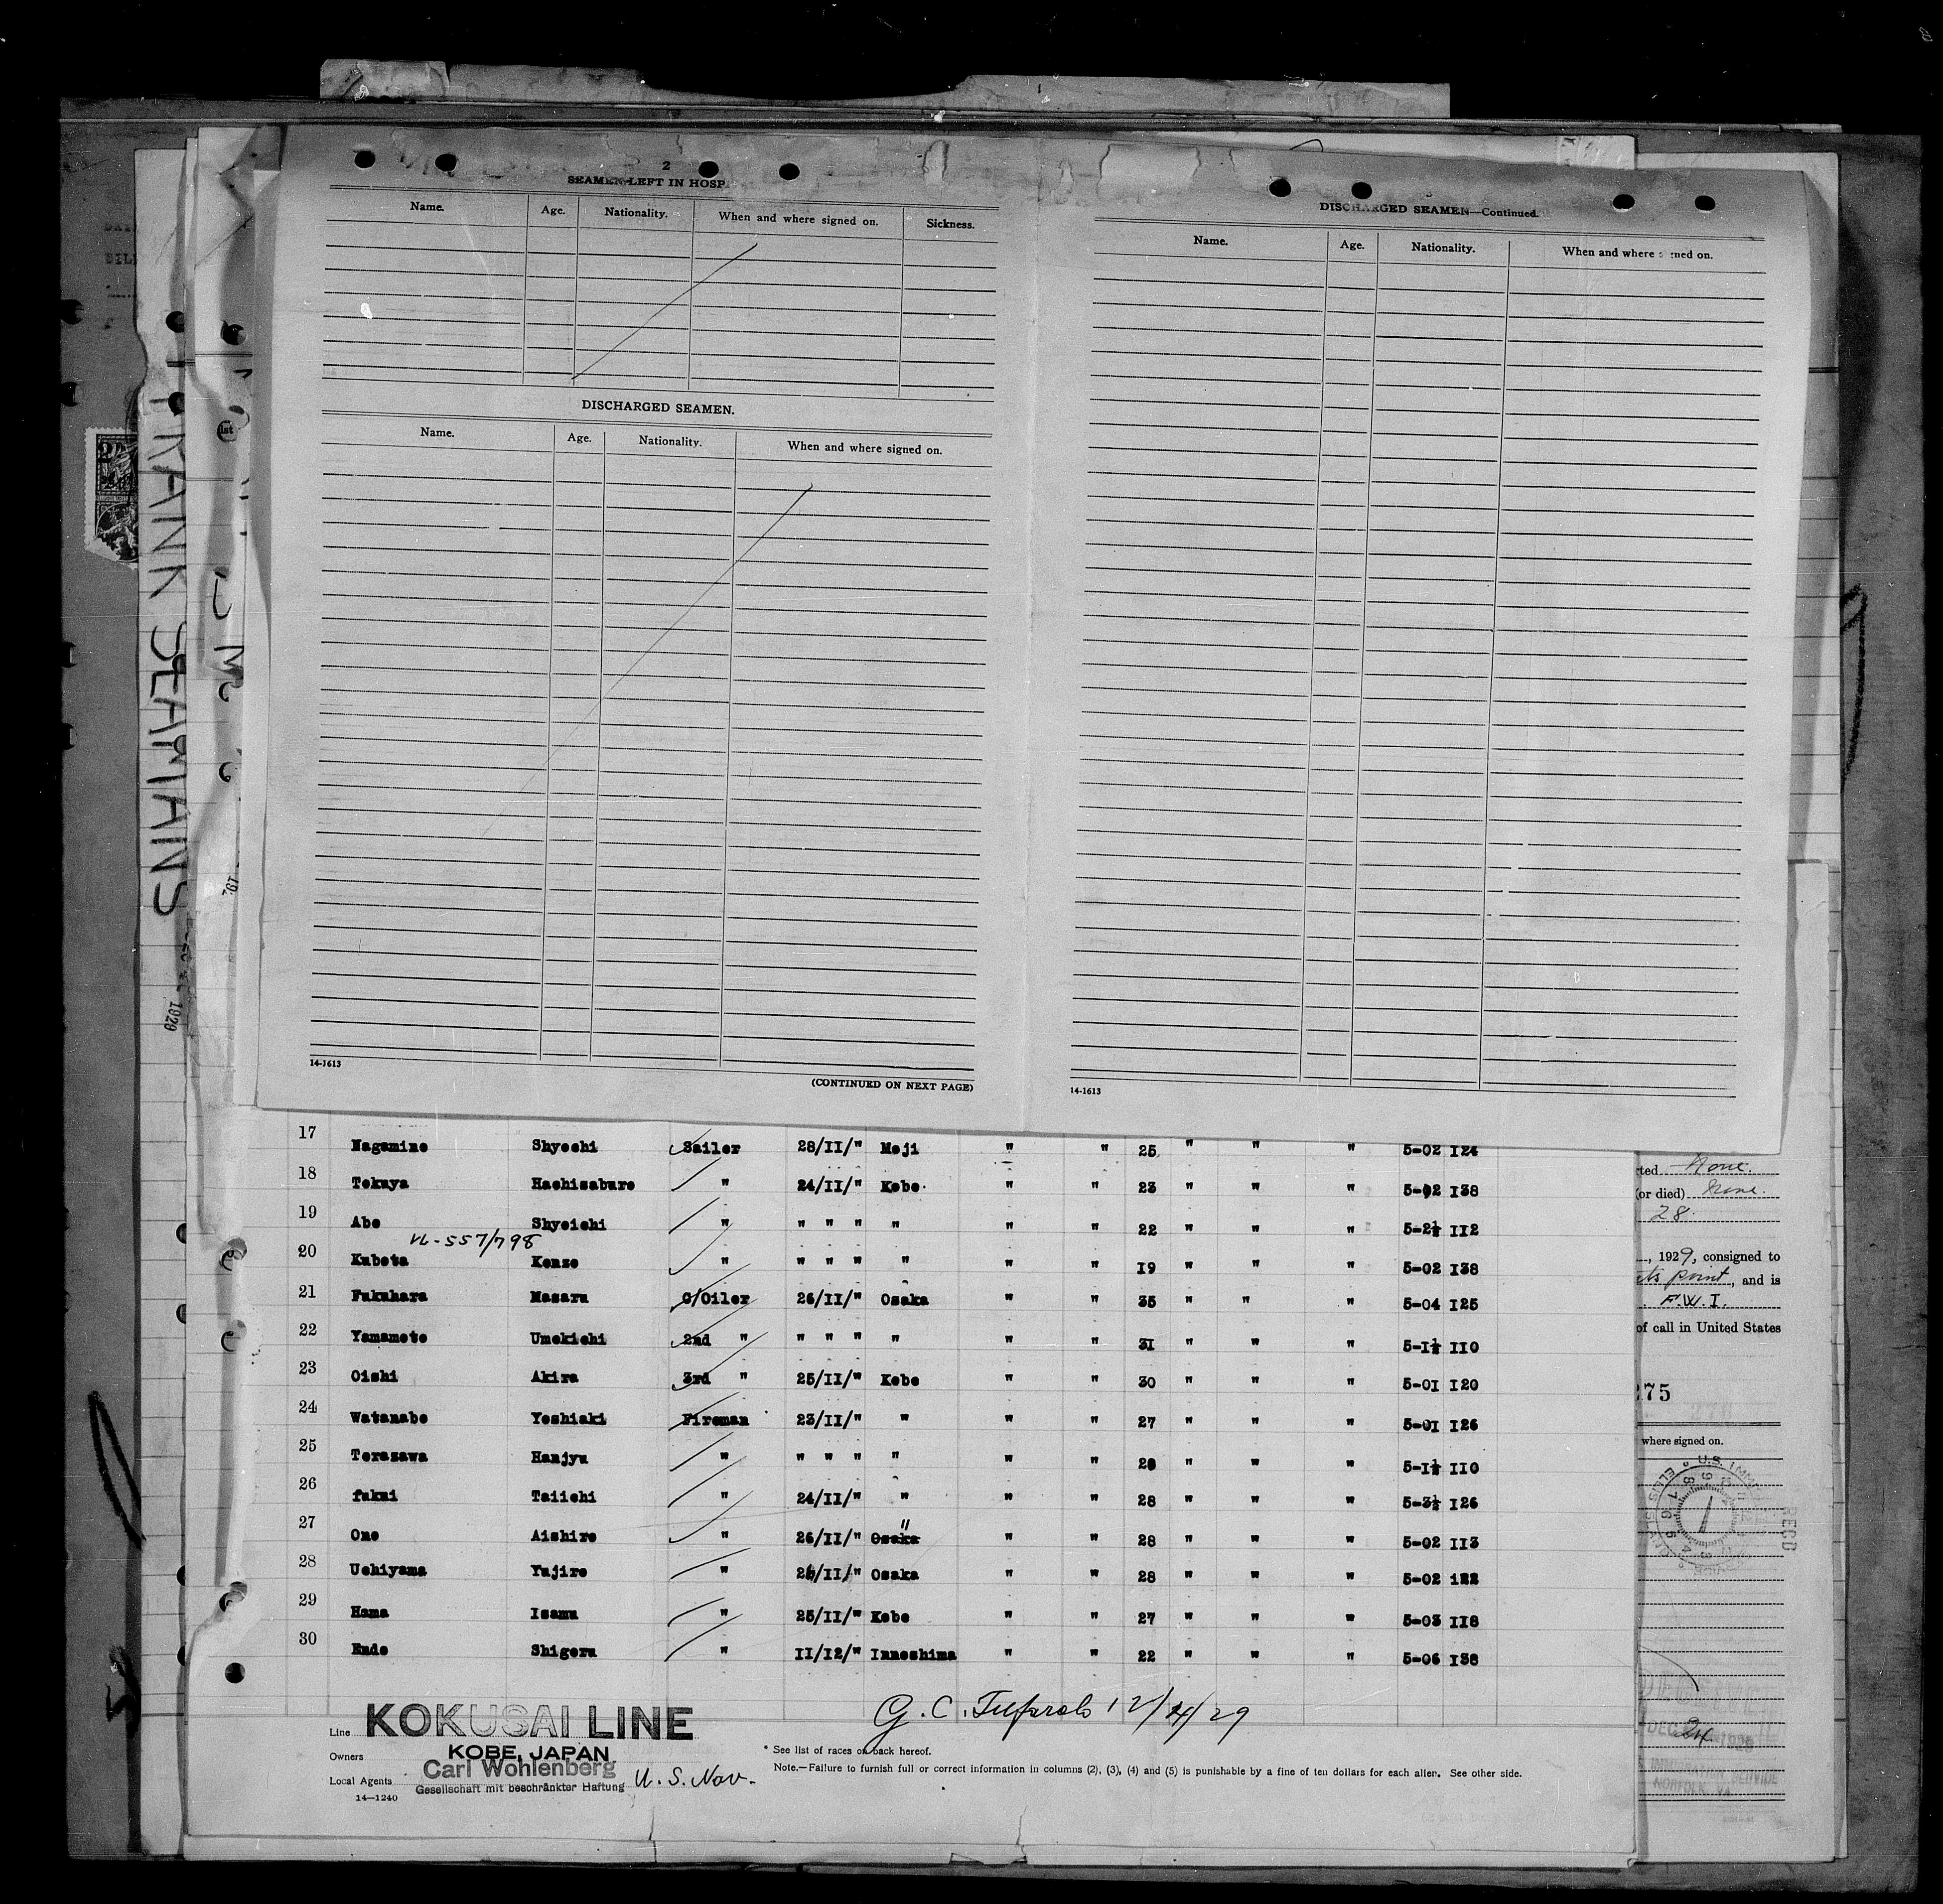 2
SEAMEN LEFT IN HOSP
Name. Age. Nationality. When and where signed on. Sickness.
DISCHARGED SEAMEN.
Name. Age. Nationality. When and where signed on.
14-1613
(CONTINUED ON NEXT PAGE)
DISCHARGED SEAMEN—Continued.
Name. Age. Nationality. When and where signed on.
14-1613
FRANK SEAMANS
1929
17 Nagamine Shyochi Sailer 28/II/" Moji " " 25 " " " 5-02 I24
18 Tokuya Hachisaburo " 24/II/" Kobe " " 23 " " " 5-02 I38
19 Abe Shyoichi " " " " " " " 22 " " " 5-2½ II2
VL-557/798
20 Kubota Kenzo " " " " " " " I9 " " " 5-02 I38
21 Fukuhara Masaru C/Oiler 26/II/" Osaka " " 35 " " " 5-04 I25
22 Yamamoto Umekichi 2nd " " " " " " " 3I " " " 5-I½ II0
23 Oishi Akira 3rd " 25/II/" Kobe " " 30 " " " 5-0I I20
24 Watanabe Yoshiaki Fireman 23/II/" " " " 27 " " " 5-0I I26
25 Terazawa Hanjyu " " " " " " " 28 " " " 5-I½ II0
26 fukui Taiichi " 24/II/" " " " 28 " " " 5-3½ I26
27 Ono Aishiro " 26/II/" Osaka " " " 28 " " " 5-02 II3
28 Uchiyama Yujiro " 26/II/" Osaka " " 28 " " " 5-02 122
29 Hama Isamu " 25/II/" Kobe " " 27 " " " 5-03 II8
30 Endo Shigeru " II/I2/" Innoshima " " 22 " " " 5-06 I38
Line KOKUSAI LINE
Owners KOBE, JAPAN
Carl Wohlenberg
Local Agents Gesellschaft mit beschränkter Haftung U. S. Nav.
14—1240
12/24/29
* See list of races on back hereof.
Note.—Failure to furnish full or correct information in columns (2), (3), (4) and (5) is punishable by a fine of ten dollars for each alien. See other side.
rted None.
(or died) None.
28
, 1929, consigned to
Point, and is
F.W.I.
of call in United States
275
where signed on.
U.S. IMM
ELLIS ISLAND
REC'D
DEC 24 1929
IMMIGRATION SERVICE
NORFOLK, VA